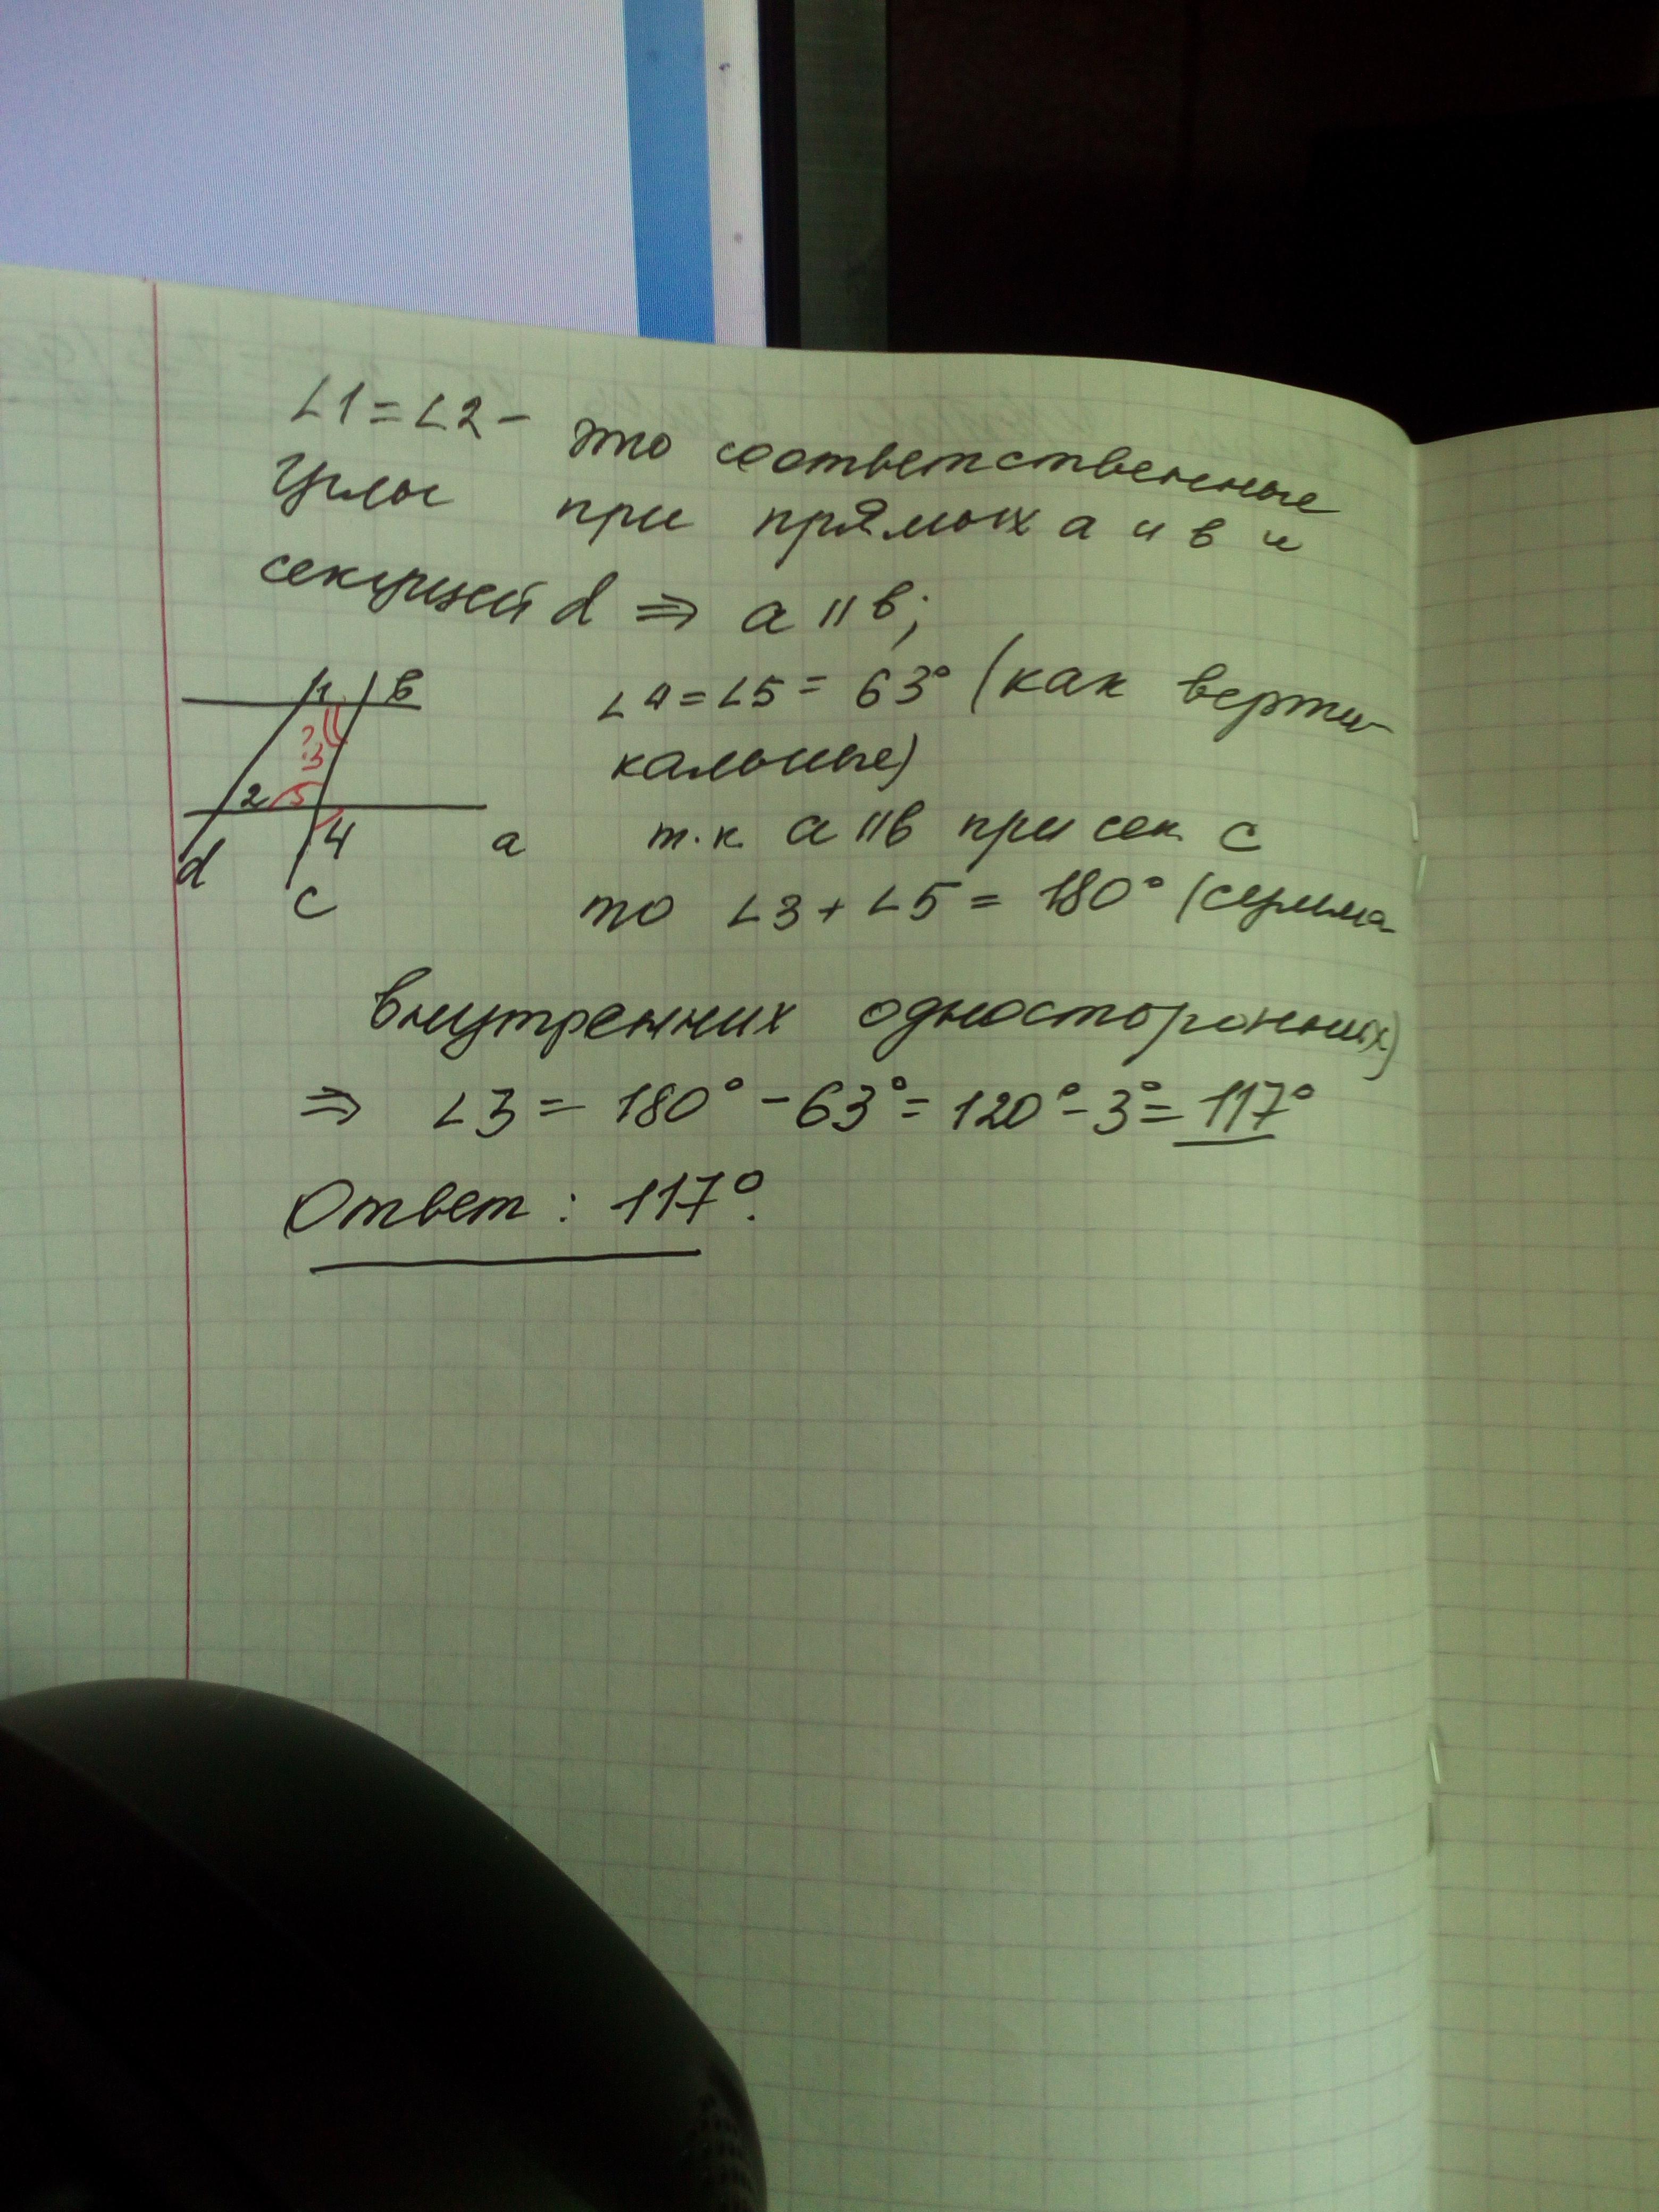 ∠1=∠2 - это соответственные
углы при прямых a и в и
секущей d ⇒ a || в;
∠4=∠5= 63° (как верти-
кальные)
т.к. a || в при сек. c
то ∠3+∠5= 180° (сумма
внутренних односторонних)
⇒ ∠3= 180°-63°=120°-3°=117°
Ответ: 117°.
1 в
?
3
2 5
4 a
d
c